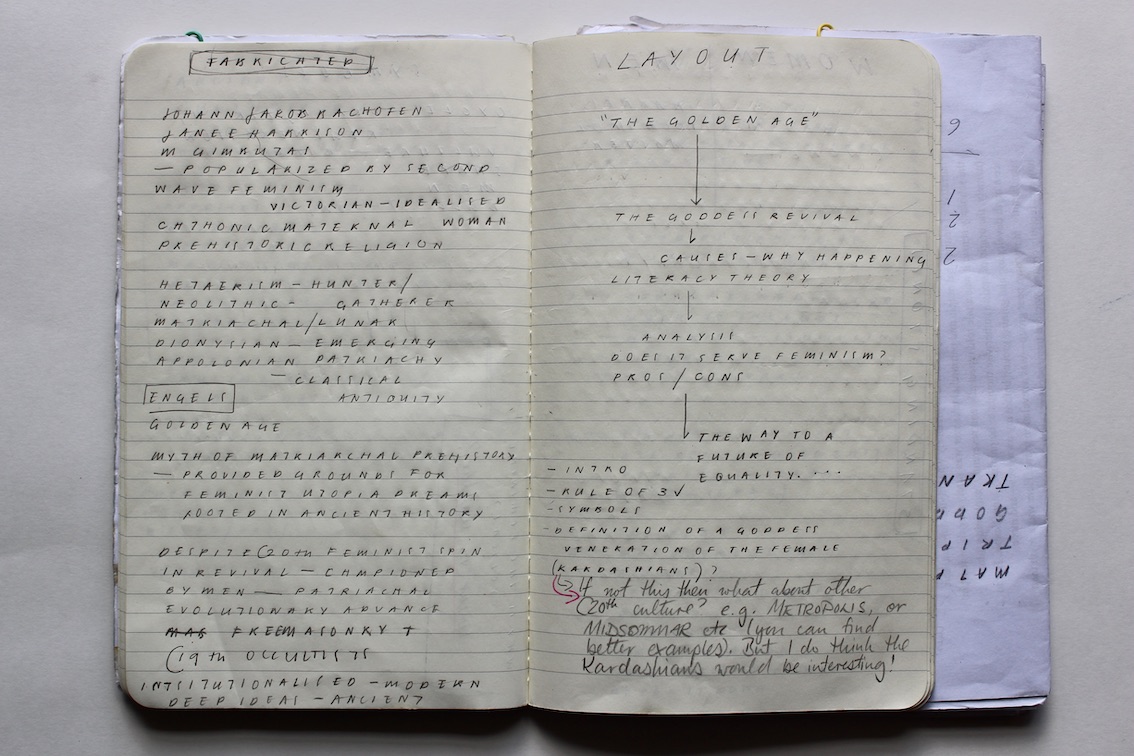 FABRICATED
JOHANN JAKOB BACHOFEN
JANE E HARRISON
M GIMBUTAS
— POPULARIZED BY SECOND
WAVE FEMINISM
VICTORIAN — IDEALISED
CHTHONIC MATERNAL WOMAN
PREHISTORIC RELIGION
HETAERISM — HUNTER/
NEOLITHIC — GATHERER
MATRIACHAL/LUNAR
DIONYSIAN — EMERGING
APPOLONIAN PATRIACHY
— CLASSICAL
ANTIQUITY
ENGELS
GOLDEN AGE
MYTH OF MATRIARCHAL PREHISTORY
— PROVIDED GROUNDS FOR
FEMINIST UTOPIA DREAMS
ROOTED IN ANCIENT HISTORY
DESPITE C20th FEMINIST SPIN
IN REVIVAL — CHMPIONED
BY MEN — PATRIACHAL
EVOLUTIONARY ADVANCE
FREEMASONRY +
C19th OCCULTISTS
INTSITUTIONALISED — MODERN
DEEP IDEAS — ANCIENT
LAYOUT
"THE GOLDEN AGE"
THE GODDESS REVIVAL
CAUSES — WHY HAPPENING
LITERACY THEORY
ANALYSIS
DOES IT SERVE FEMINISM?
PROS / CONS
THE WAY TO A
FUTURE OF
EQUALITY....
- INTRO
- RULE OF 3 ✓
- SYMBOLS
- DEFINITION OF A GODDESS
VENERATION OF THE FEMALE
(KARDASHIANS)?
If not this then what about other
C20th culture? e.g. METROPOLIS, or
MIDSOMMAR etc (you can find
better examples). But I do think the
Kardashians would be interesting!
MAT
TRIP
GOD
TRAN